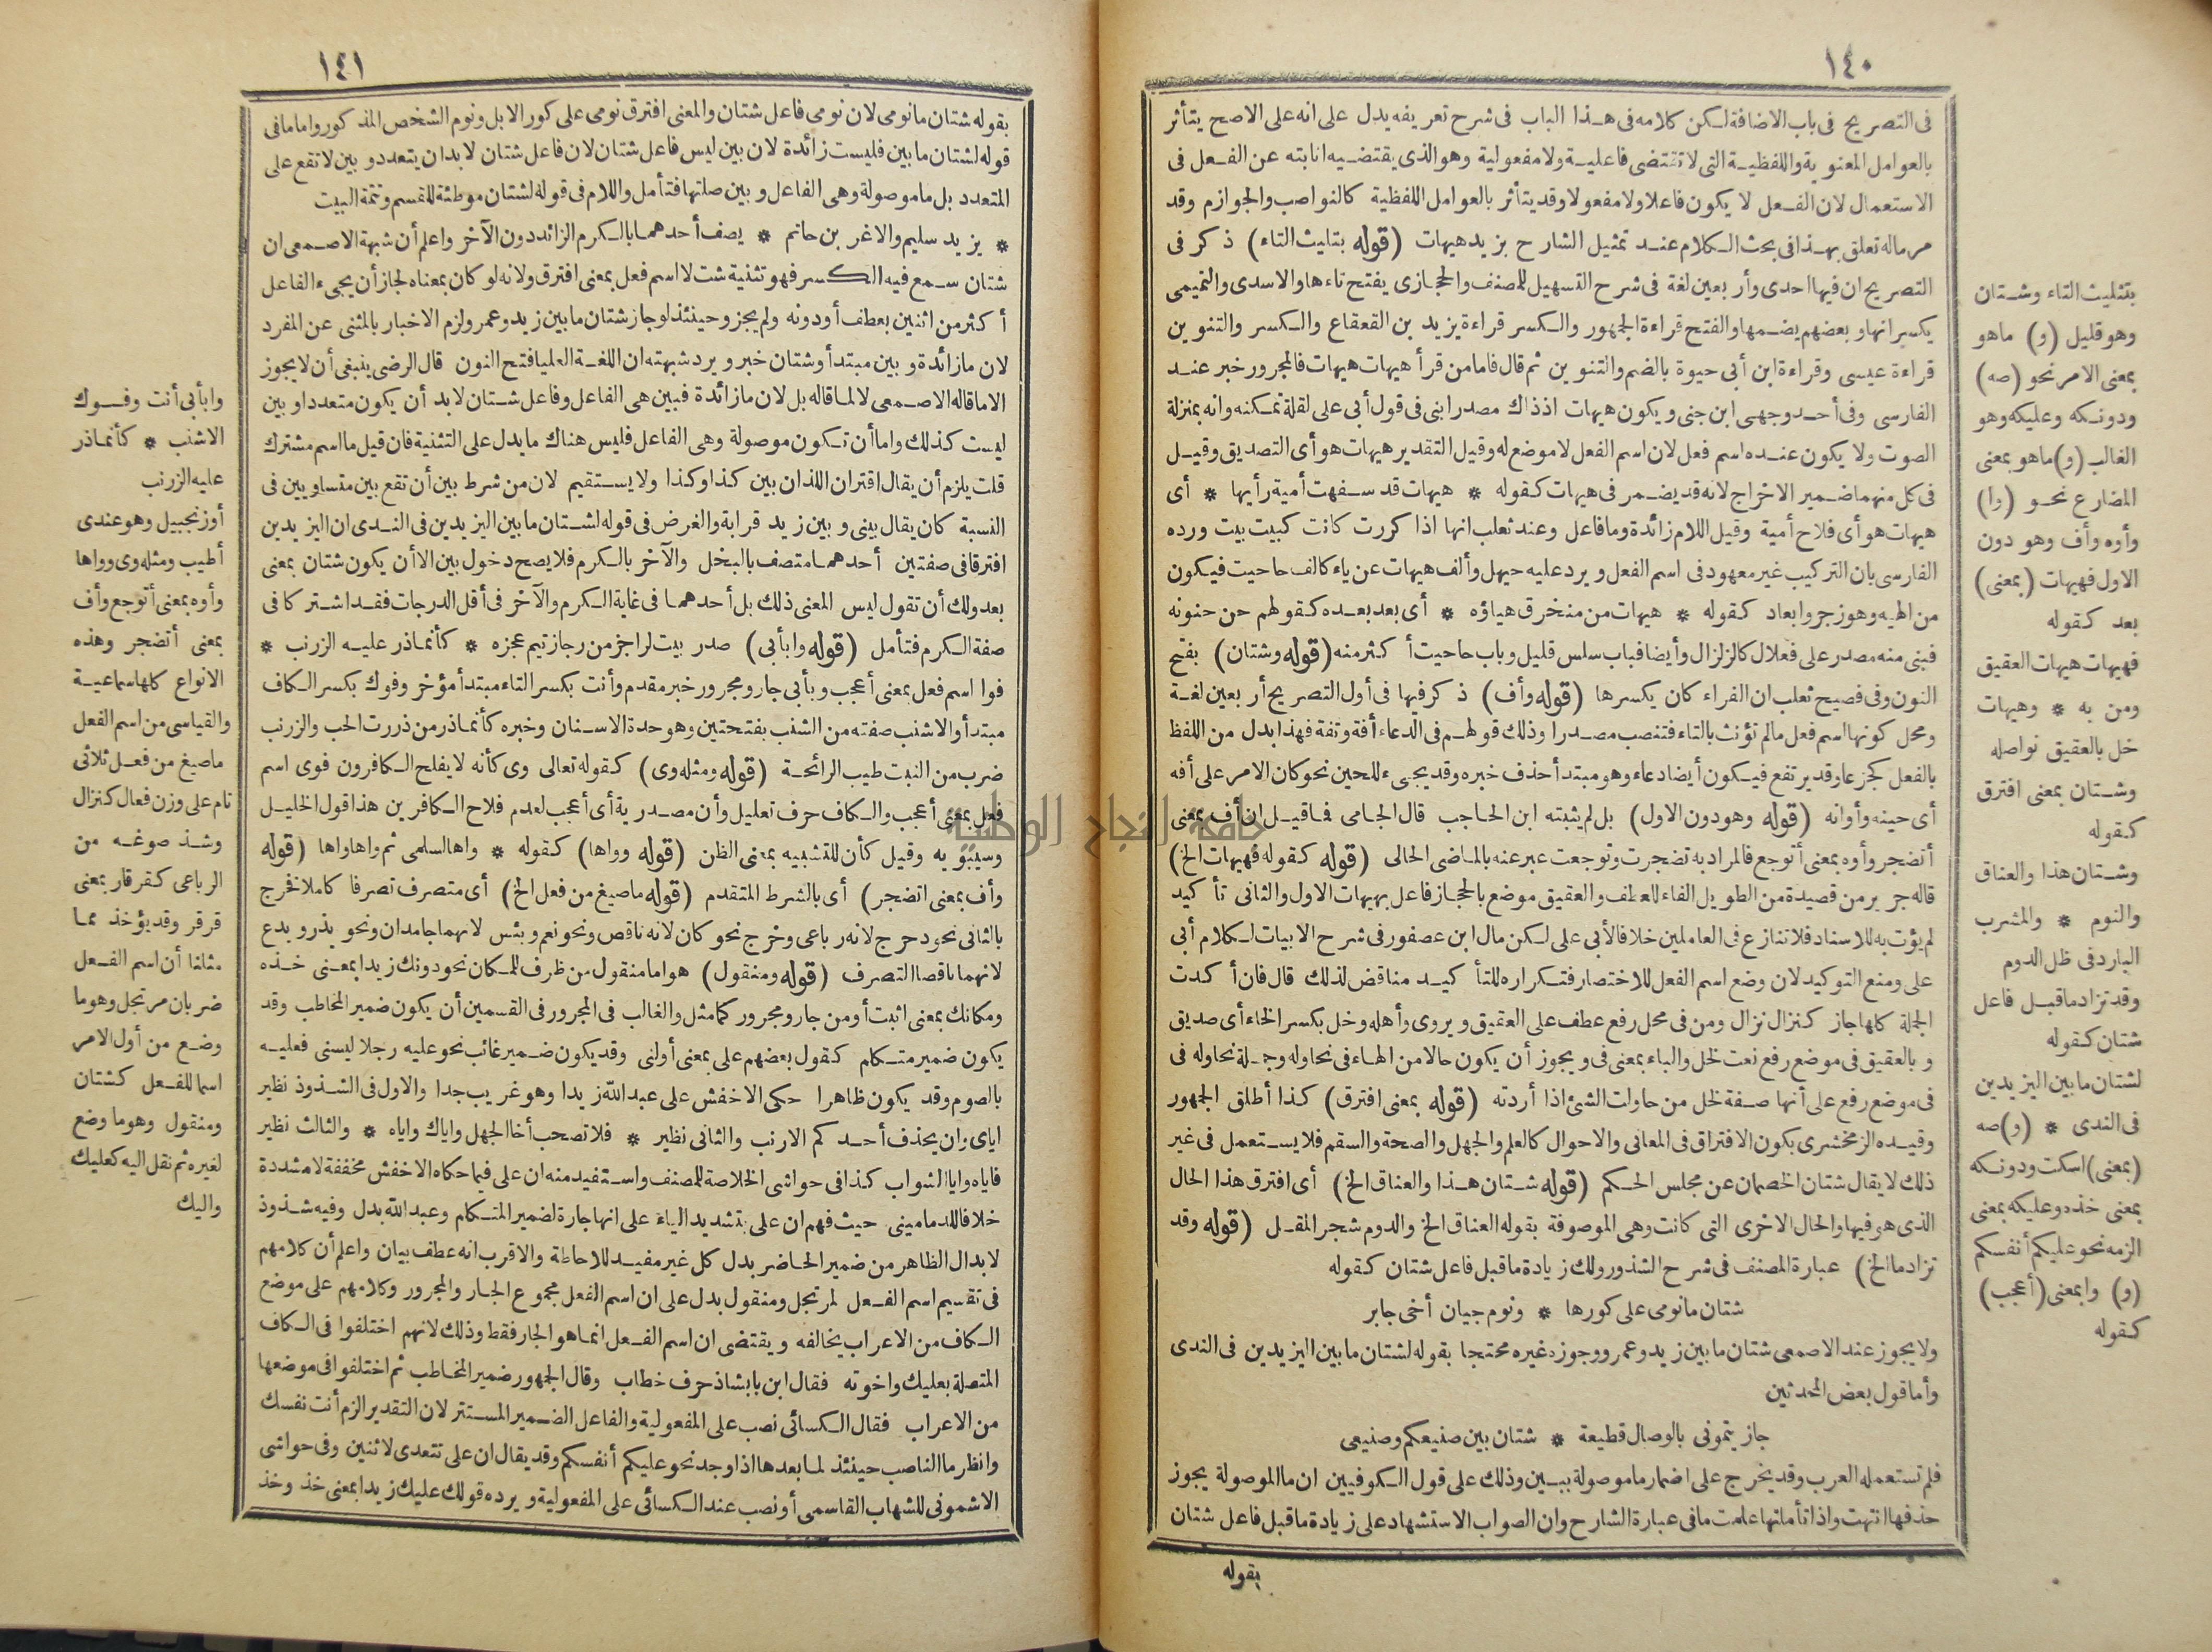 ١٤٠
فى التصريح فى باب الاضافة لكن كلامه فى هذا الباب فى شرح تعريفه يدل على انه على الاصح يتأثر
بالعوامل المعنوية واللفظية التى لا تقتضى فاعلية ولا مفعولية وهو الذى يقتضيه انابته عن الفعل فى
الاستعمال لان الفعل لا يكون فاعلا ولا مفعولا وقد يتأثر بالعوامل اللفظية كالنواصب والجوازم وقد
مر ماله تعلق بهذا فى بحث الكلام عند تمثيل الشارح بزيد هيهات (قوله بتليث التاء) ذكر فى
التصريح ان فيها احدى وأربعين لغة فى شرح التسهيل للمصنف والحجازى يفتح تاءها والاسدى والتميمى
يكسرانها وبعضهم يضمها والفتح قراءة الجمهور والكسر قراءة يزيد بن القعقاع والكسر والتنوين
قراءة عيسى وقراءة ابن أبى حيوة بالضم والتنوين ثم قال فامامن قرأ هيهات هيهات فالمجرور خبر عند
الفارسى وفى أحد وجهى ابن جنى ويكون هيهات اذذاك مصدرا بنى فى قول أبى على لقلة تمكنه وانه بمنزلة
الصوت ولا يكون عنده اسم فعل لان اسم الفعل لا موضع له وقيل التقدير هيهات هو أى التصديق وقيل
فى كل منهما ضمير الاخراج لانه قد يضمر فى هيهات كقوله * هيهات قد سفهت أمية رأيها * أى
هيهات هو أى فلاح أمية وقيل اللام زائدة وما فاعل وعند ثعلب انها اذا كررت كانت كبيت بيت ورده
الفارسى بان التركيب غير معهود فى اسم الفعل ويرد عليه حيهل وألف هيهات عن ياء كالف حاحيت فيكون
من الهيه وهو زجر وابعاد كقوله * هيهات من منخرق هياؤه * أى بعد بعده كقولهم حن حنونه
فبنى منه مصدر على فعلال كالزلزال وأيضا فباب سلس قليل وباب حاحيت أكثر منه (قوله وشتان) بفتح
النون وفى فصيح ثعلب ان الفراء كان يكسرها (قوله وأف) ذكر فيها فى أول التصريح أربعين لغة
ومحل كونها اسم فعل مالم تؤنث بالتاء فتنصب مصدرا وذلك قولهم فى الدعاء أفة وتفة فهذا بدل من اللفظ
بالفعل كجزعا وقد يرتفع فيكون أيضا دعاء وهو مبتدأ حذف خبره وقد يجىء للحين نحو كان الامر على أفه
أى حينه وأوانه (قوله وهو دون الاول) بل لم يثبته ابن الحاجب قال الجامى فما قيل ان أف بمعنى
أتضجر وأوه بمعنى أتوجع فالمراد به تضجرت وتوجعت عبر عنه بالماضى الحالى (قوله كقوله فهيهات الخ)
قاله جرير من قصيدة من الطويل الفاء للعطف والعقيق موضع بالحجاز فاعل بهيهات الاول والثانى تأكيد
لم يؤت به للاسناد فلا تنازع فى العاملين خلافا لأبى على لكن مال ابن عصفور فى شرح الابيات لكلام أبى
على ومنع التوكيد لان وضع اسم الفعل للاختصار فتكراره للتأكيد مناقض لذلك قال فان أكدت
الجملة كلها جاز كنزال نزال ومن فى محل رفع عطف على العقيق ويروى وأهله وخل بكسر الخاء أى صديق
وبالعقيق فى موضع رفع نعت لخل والباء بمعنى فى ويجوز أن يكون حالا من الهاء فى نحاوله وجملة نحاوله فى
فى موضع رفع على أنها صفة لخل من حاولت الشئ اذا أردته (قوله بمعنى افترق) كذا أطلق الجمهور
وقيده الزمخشرى بكون الافتراق فى المعانى والاحوال كالعلم والجهل والصحة والسقم فلا يستعمل فى غير
ذلك لا يقال شتان الخصمان عن مجلس الحكم (قوله شتان هذا والعناق الخ) أى افترق هذا الحال
الذى هو فيها والحال الاخرى التى كانت وهى الموصوفة بقوله العناق الخ والدوم شجر المقل (قوله وقد
تزاد ما الخ) عبارة المصنف فى شرح الشذور ولك زيادة ما قبل فاعل شتان كقوله
شتان ما نومى على كورها * ونوم حيان أخى جابر
ولا يجوز عند الاصمعى شتان ما بين زيد وعمرو وجوزه غيره محتجا بقوله لشتان ما بين اليزيدين فى الندى
وأما قول بعض المحدثين
جازيتمونى بالوصال قطيعة * شتان بين صنيعكم وصنيعى
فلم تستعمله العرب وقد يخرج على اضمار ما موصولة ببين وذلك على قول الكوفيين ان ما الموصولة يجوز
حذفها انتهت واذا تأملتها علمت ما فى عبارة الشارح وان الصواب الاستشهاد على زيادة ما قبل فاعل شتان
بقوله
بتثليث التاء وشتان
وهو قليل (و) ما هو
بمعنى الامر نحو (صه)
ودونكه وعليكه وهو
الغالب (و) ما هو بمعنى
المضارع نحو (وا)
وأوه وأف وهو دون
الاول فهيهات (بمعنى)
بعد كقوله
فهيهات هيهات العقيق
ومن به * وهيهات
خل بالعقيق نواصله
وشتان بمعنى افترق
كقوله
وشتان هذا والعناق
والنوم * والمشرب
البارد فى ظل الدوم
وقد تزاد ما قبل فاعل
شتان كقوله
لشتان ما بين اليزيدين
فى الندى * (و) صه
(بمعنى) اسكت ودونكه
بمعنى خذه وعليكه بمعنى
الزمه نحو عليكم أنفسكم
(و) وا بمعنى (أعجب)
كقوله
١٤١
بقوله شتان ما نومى لان نومى فاعل شتان والمعنى افترق نومى على كور الابل ونوم الشخص المذكور واما ما فى
قوله لشتان ما بين فليست زائدة لان بين ليس فاعل شتان لان فاعل شتان لا بد ان يتعدد وبين لا تقع على
المتعدد بل ما موصولة وهى الفاعل وبين صلتها فتأمل واللام فى قوله لشتان موطئة للقسم وتتمة البيت
* يزيد سليم والاغر بن حاتم * يصف أحدهما بالكرم الزائد دون الآخر واعلم أن شبهة الاصمعى ان
شتان سمع فيه الكسر فهو تثنية شت لا اسم فعل بمعنى افترق ولانه لو كان بمعناه لجاز أن يجىء الفاعل
أكثر من اثنين بعطف أو دونه ولم يجز وحينئذ لو جاز شتان ما بين زيد وعمرو لزم الاخبار بالمثنى عن المفرد
لان ما زائدة وبين مبتدأ وشتان خبر ويرد شبهته ان اللغة العليا فتح النون قال الرضى ينبغى أن لا يجوز
الا ما قاله الاصمعى لا لما قاله بل لان ما زائدة فبين هى الفاعل وفاعل شتان لا بد أن يكون متعددا وبين
ليست كذلك واما أن تكون موصولة وهى الفاعل فليس هناك ما يدل على التثنية فان قيل ما اسم مشترك
قلت يلزم أن يقال اقتران اللذان بين كذا وكذا ولا يستقيم لان من شرط بين أن تقع بين متساويين فى
النسبة كان يقال بينى وبين زيد قرابة والغرض فى قوله لشتان ما بين اليزيدين فى الندى ان اليزيدين
افترقا فى صفتين أحدهما متصف بالبخل والآخر بالكرم فلا يصح دخول بين الا أن يكون شتان بمعنى
بعد ولك أن تقول ليس المعنى ذلك بل أحدهما فى غاية الكرم والآخر فى أقل الدرجات فقد اشتركا فى
صفة الكرم فتأمل (قوله وابأبى) صدر بيت لراجز من رجاز تيم عجزه * كأنما ذر عليه الزرنب *
فوا اسم فعل بمعنى أعجب وبأبى جار ومجرور خبر مقدم وأنت بكسر التاء مبتدأ مؤخر وفوك بكسر الكاف
مبتدأ والاشنب صفته من الشنب بفتحتين وهو حدة الاسنان وخبره كأنما ذر من ذررت الحب والزرنب
ضرب من النبت طيب الرائحة (قوله ومثله وى) كقوله تعالى وى كأنه لا يفلح الكافرون فوى اسم
فعل بمعنى أعجب والكاف حرف تعليل وأن مصدرية أى أعجب لعدم فلاح الكافرين هذا قول الخليل
وسيبويه وقيل كأن للتشبيه بمعنى الظن (قوله وواها) كقوله * واها لسلمى ثم واها واها (قوله
وأف بمعنى اتضجر) أى بالشرط المتقدم (قوله ما صيغ من فعل الخ) أى متصرف تصرفا كاملا فخرج
بالثانى نحو دحرج لانه رباعى وخرج نحو كان لانه ناقص ونحو نعم وبئس لانهما جامدان ونحو يذر ويدع
لانهما ناقصا التصرف (قوله ومنقول) هو اما منقول من ظرف للمكان نحو دونك زيدا بمعنى خذه
ومكانك بمعنى اثبت أو من جار ومجرور كما مثل والغالب فى المجرور فى القسمين أن يكون ضمير المخاطب وقد
يكون ضمير متكلم كقول بعضهم على بمعنى أولنى وقد يكون ضمير غائب نحو عليه رجلا ليسنى فعليه
بالصوم وقد يكون ظاهرا حكى الاخفش على عبد الله زيدا وهو غريب جدا والاول فى الشذوذ نظير
اياى وان يحذف أحدكم الارنب والثانى نظير * فلا تصحب أخا الجهل واياك واياه * والثالث نظير
فاياه وايا الشواب كذا فى حواشى الخلاصة للمصنف واستفيد منه ان على فيما حكاه الاخفش مخففة لا مشددة
خلافا للدمامينى حيث فهم ان على بتشديد الياء على انها جارة لضمير المتكلم وعبد الله بدل وفيه شذوذ
لابدال الظاهر من ضمير الحاضر بدل كل غير مفيد للاحاطة والاقرب انه عطف بيان واعلم أن كلامهم
فى تقسيم اسم الفعل لمرتجل ومنقول يدل على ان اسم الفعل مجموع الجار والمجرور وكلامهم على موضع
الكاف من الاعراب يخالفه ويقتضى ان اسم الفعل انما هو الجار فقط وذلك لانهم اختلفوا فى الكاف
المتصلة بعليك واخوته فقال ابن بابشاذ حرف خطاب وقال الجمهور ضمير المخاطب ثم اختلفوا فى موضعها
من الاعراب فقال الكسائى نصب على المفعولية والفاعل الضمير المستتر لان التقدير الزم أنت نفسك
وانظر ما الناصب حينئذ لما بعدها اذا وجد نحو عليكم أنفسكم وقد يقال ان على تتعدى لاثنين وفى حواشى
الاشمونى للشهاب القاسمى أو نصب عند الكسائى على المفعولية ويرده قولك عليك زيدا بمعنى خذ وخذ
وابأبى أنت وفوك
الاشنب * كأنما ذر
عليه الزرنب
أو زنجبيل وهو عندى
أطيب ومثله وى وواها
وأوه بمعنى أتوجع وأف
بمعنى أتضجر وهذه
الانواع كلها سماعية
والقياسى من اسم الفعل
ما صيغ من فعل ثلاثى
تام على وزن فعال كنزال
وشذ صوغه من
الرباعى كقرقار بمعنى
قرقر وقد يؤخذ مما
مثلنا أن اسم الفعل
ضربان مرتجل وهو ما
وضع من أول الامر
اسما للفعل كشتان
ومنقول وهو ما وضع
لغيره ثم نقل اليه كعليك
واليك
جامعة النجاح الوطنية